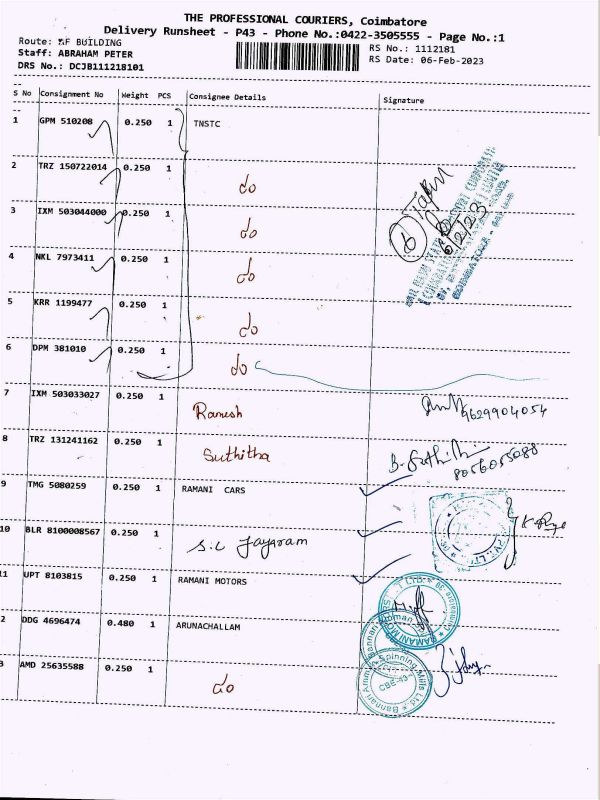 THE PROFESSIONAL COURIERS, Coimbatore
Delivery Runsheet - P43 - Phone No.:0422-3505555 - Page No.:1
Route: RF BUILDING
RS No.: 1112181
Staff: ABRAHAM PETER
RS Date: 06-Feb-2023
DRS No.: DCJB111218101
S No Consignment No Weight PCS Consignee Details Signature
1 GPM 510208 0.250 1 TNSTC
2 TRZ 150722014 0.250 1 do
3 IXM 503044000 0.250 1 do
4 NKL 7973411 0.250 1 do
5 KRR 1199477 0.250 1 do
6 DPM 381010 0.250 1 do
6/2/23
7 IXM 503033027 0.250 1 Ramesh 9629904054
8 TRZ 131241162 0.250 1 Suthitha 8056055088
9 TMG 5080259 0.250 1 RAMANI CARS
10 BLR 8100008567 0.250 1 S.C Jayaram
11 UPT 8103815 0.250 1 RAMANI MOTORS
2 DDG 4696474 0.480 1 ARUNACHALLAM
3 AMD 25635588 0.250 1 do
Bannari Amman Spinning Mills Ltd
CBE-43